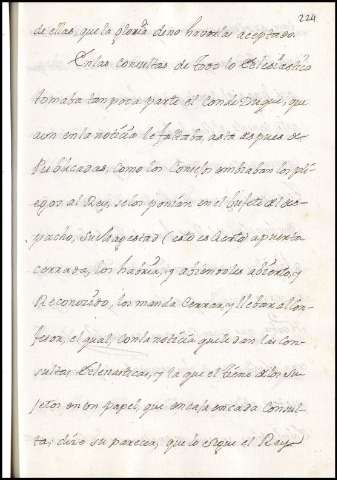 224
de ellas, que la gloria de no haverlas aceptado.
En las consultas de todo lo Eclesiastico
tomaba tan poca parte el Conde Duque, que
aun en la noticia le faltaba, asta despues de
Publicadas, como los Consejos embiaban los pli
egos al Rey, selos ponian en el bufete del des
pacho, Su Magestad (esto es cierto) a puerta
cerrada, los habria, y abiendolos abierto, y
Reconocido, los manda cerrar, y llebar al Con
fesor, el qual, con la noticia que le dan las Con
sultas Eclesiasticas, y la que el tiene de los Su
jetos en un papel, que encaja en cada Consul
ta, dice su parecer, que lo sigue el Rey